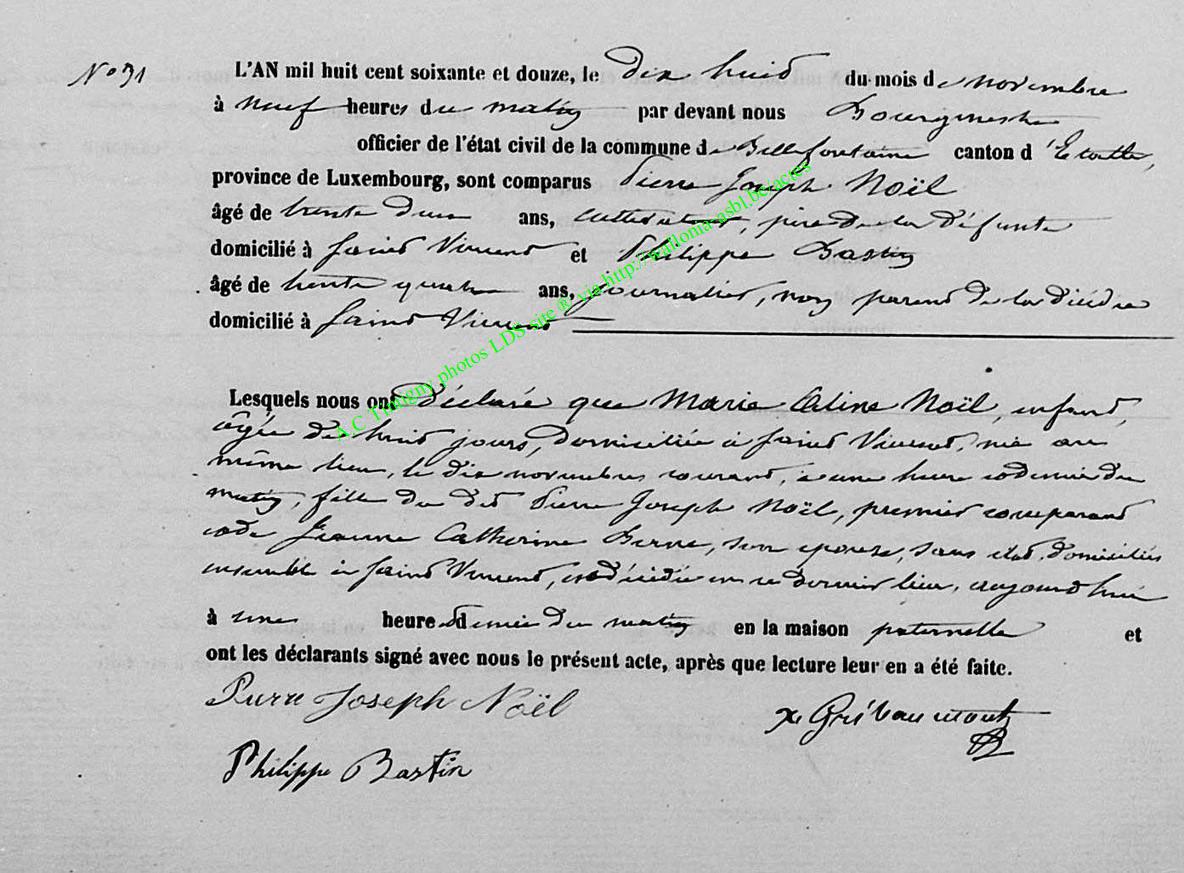 N° 31
L'AN mil huit cent soixante et douze, le dix huit du mois de novembre
à neuf heures du matin par devant nous Bourgmestre
officier de l'état civil de la commune de Bellefontaine canton d'Etalle,
province de Luxembourg, sont comparus Pierre Joseph Noël
âgé de trente deux ans, cultivateur, père de la défunte
domicilié à Saint Vincent et Philippe Bastin
âgé de trente quatre ans, journalier, non parent de la dédée
domicilié à Saint Vincent
Lesquels nous ont déclaré que Marie Céline Noël, enfant,
âgée de huit jours, domiciliée à Saint Vincent, née au
même lieu, le dix novembre courant, à une heure et demie du
matin, fille du dit Pierre Joseph Noël, premier comparant
et de Jeanne Catherine Berne, son épouse, sans état, domiciliés
ensemble à Saint Vincent, est décédée en ce dernier lieu, aujourd'hui
à une heure et demie du matin en la maison paternelle et
ont les déclarants signé avec nous le présent acte, après que lecture leur en a été faite.
Pierre Joseph Noël
X Gribaumont
Philippe Bastin
A.C Tintigny photos LDS site ® via http://walloniasbl.be/actes